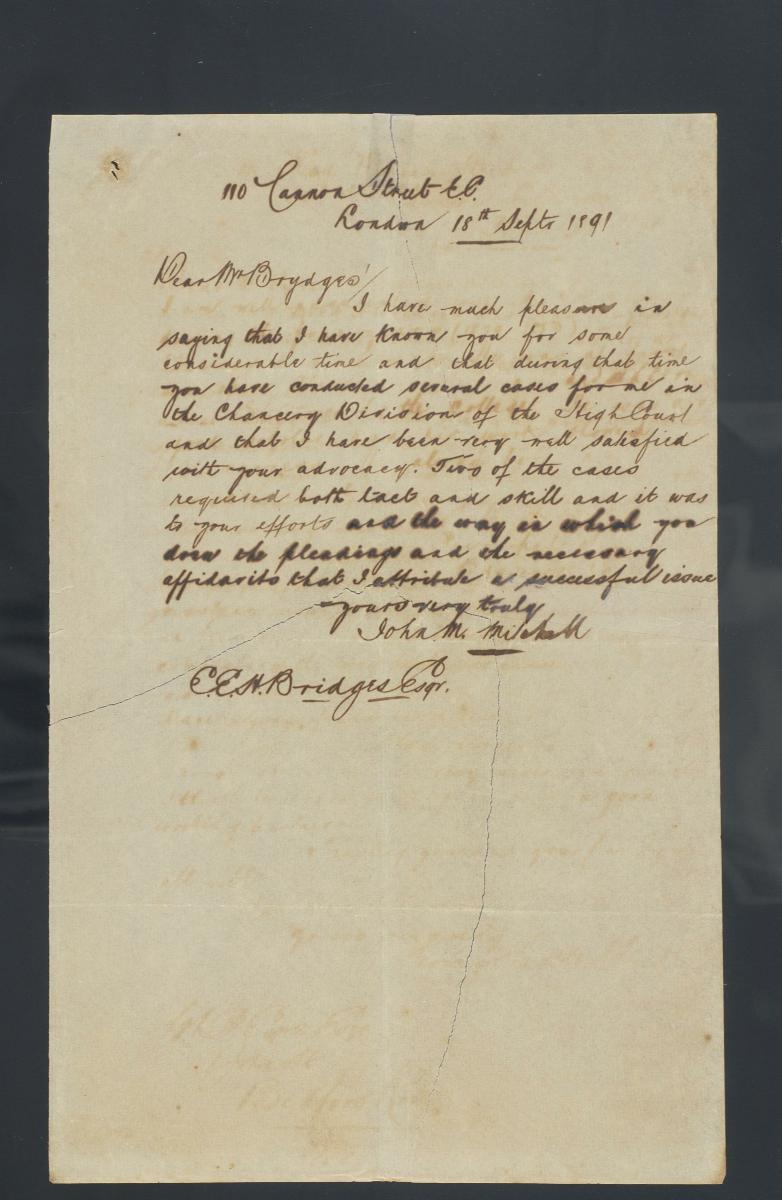 110 Cannon Street E.C.
London 18th Septr 1891
Dear Mr Brydges
I have much pleasure in
saying that I have known you for some
considerable time and that during that time
you have conducted several cases for me in
the Chancery Division of the High Court
and that I have been very well satisfied
with your advocacy. Two of the cases
required both tact and skill and it was
to your efforts and the way in which you
drew the pleadings and the necessary
affidavits that I attribute a successful issue
yours very truly
John M. Mitchell
C.E.H. Bridges Esqr.